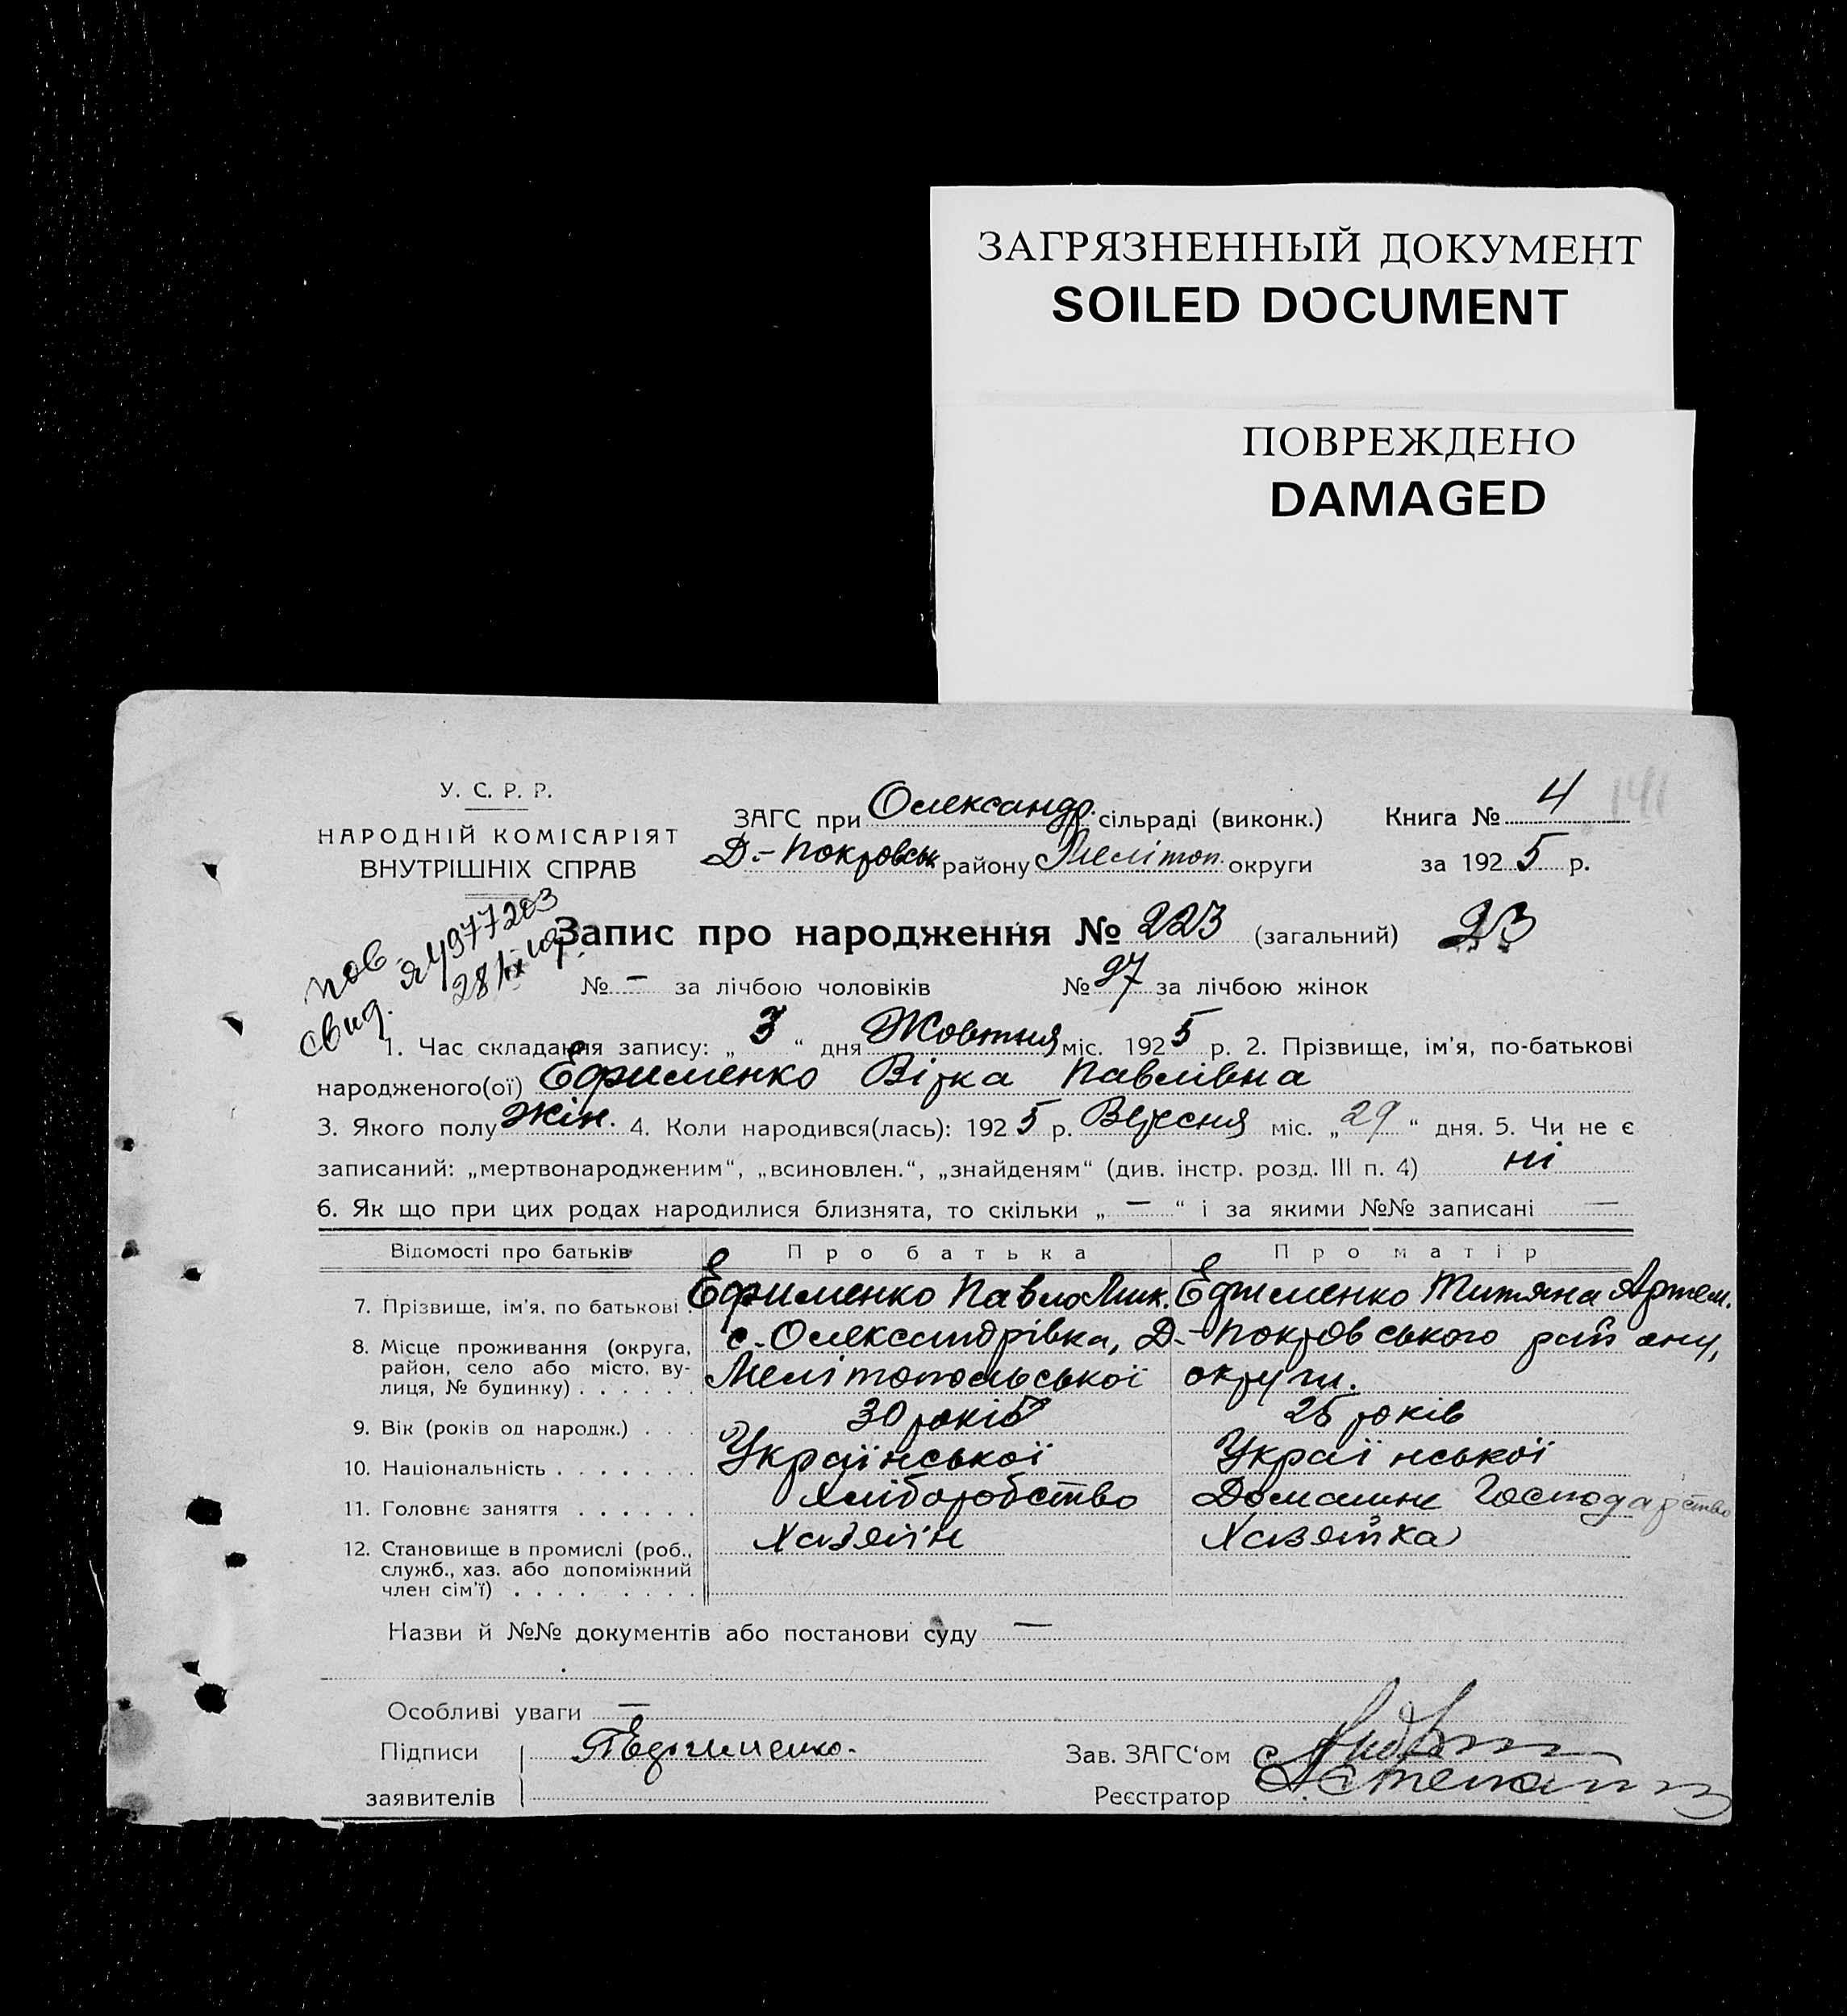 ЗАГРЯЗНЕННЫЙ ДОКУМЕНТ
SOILED DOCUMENT
ПОВРЕЖДЕНО
DAMAGED
У. С. Р. Р.
НАРОДНІЙ КОМІСАРІЯТ
ВНУТРІШНІХ СПРАВ
ЗАГС при Олександр. сільраді (виконк.)
Д.-Покровськ району Мелітоп. округи
Книга № 4
141
за 1925 р.
пов. свид.
Запис про народження № 223 (загальний) 23
№ – за лічбою чоловіків № 97 за лічбою жінок
1. Час складання запису: „ 3 “ дня Жовтня міс. 1925 р. 2. Прізвище, ім'я, по-батькові
народженого(ої) Ефименко Вірка Павлівна
3. Якого полу жін. 4. Коли народився(лась): 1925 р. Вересня міс. „ 29 “ дня. 5. Чи не є
записаний: „мертвонародженим“, „всиновлен.“, „знайденям“ (див. інстр. розд. III п. 4) ні
6. Як що при цих родах народилися близнята, то скільки „ — “ і за якими №№ записані —
Відомості про батьків Про батька Про матір
7. Прізвище, ім'я, по батькові Ефименко Павло Мик. Ефименко Титяна Артем.
8. Місце проживання (округа, с. Олександрівка, Д.-Покровського району,
район, село або місто, ву-
лиця, № будинку) . . . . . . Мелітопольської округи.
9. Вік (років од народж.) . . . 30 років 25 років
10. Національність . . . . . . . Української Української
11. Головнє заняття . . . . . . Хліборобство Домашнє Господарство
12. Становище в промислі (роб., Хазяїн Хазяйка
служб., хаз. або допоміжний
член сім'ї) . . . . . . . . .
Назви й №№ документів або постанови суду —
Особливі уваги —
Підписи П Ефименко.
заявителів
Зав. ЗАГС‘ом
Реєстратор